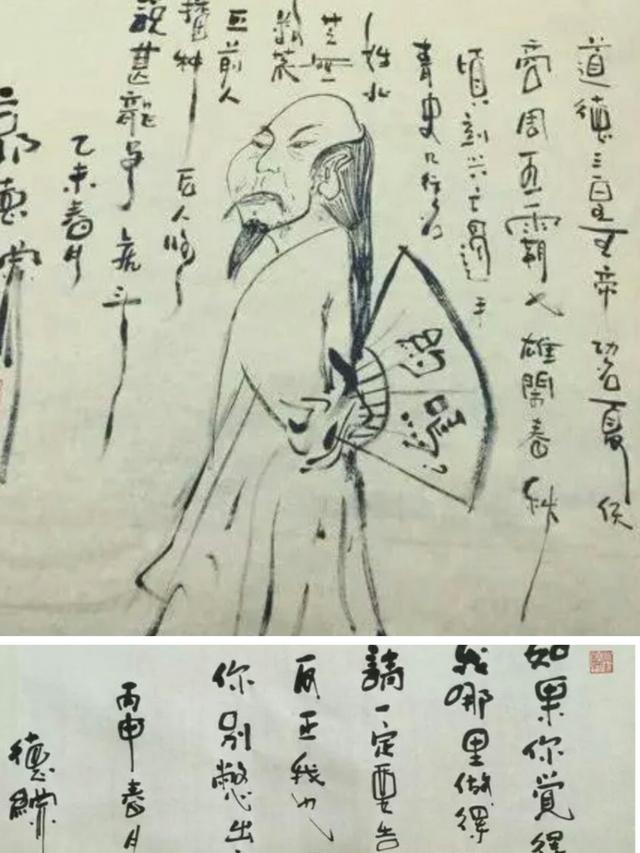 道德三皇五帝功名夏侯
商周五霸七雄鬧春秋
頃刻兴亡過手
青史几行名
姓北
芒無
荒
丘前人
播种后人收
説甚龍争虎斗
乙未春月
郭德綱
如果你覺得
我哪里做得
請一定要告
反正我也
你别憋出
丙申春月
德綱